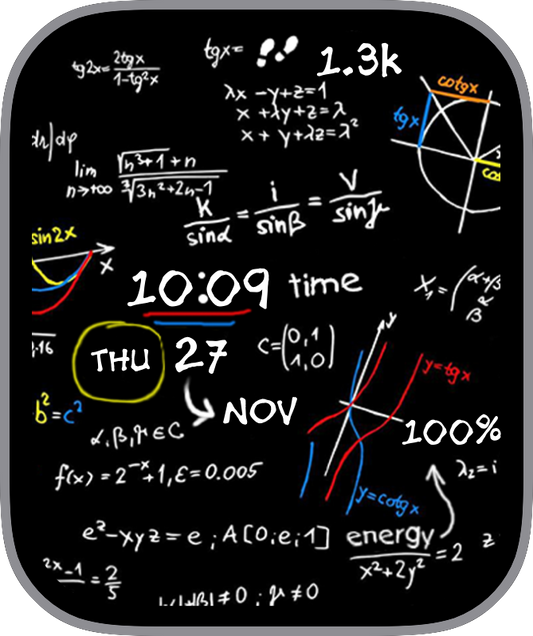 tg2x= 2tgx / 1-tg²x
tgx=
1.3k
λx -y+z=1
x +λy+z=λ
x + y+λz=λ²
cotgx
tgx
lim n→+∞ √n³+1 + n / ∛3n²+2n-1
K/sinα = i/sinβ = V/sinγ
sin2x
x
10:09 time
X₁=
THU
27
C=(0,1
1,0)
y
y=tgx
b²=c²
NOV
α,β,γ∈C
100%
f(x) = 2⁻ˣ+1, ε=0.005
λ₂=i
y=cotgx
e²-xyz=e ; A[0;e;1]
energy / x²+2y² =2
z
2x-1 = 2/5
≠0 ; γ≠0